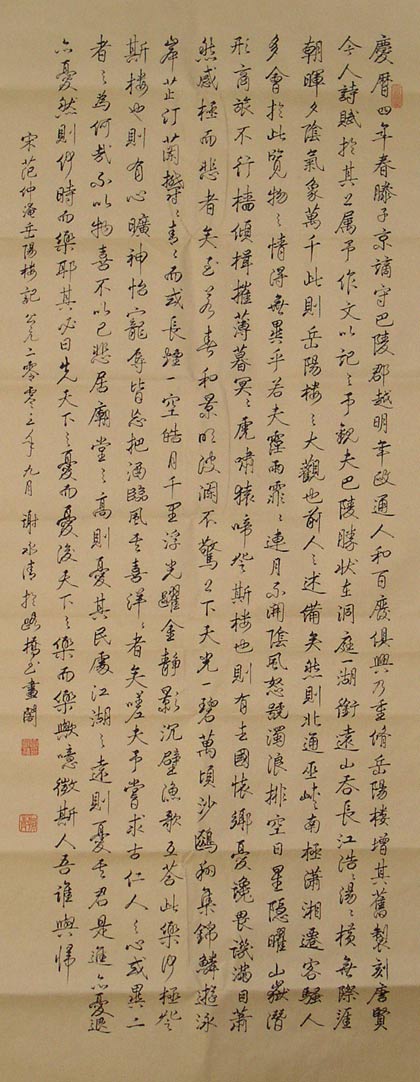 慶曆四年春滕子京謫守巴陵郡越明年政通人和百廢俱興乃重脩岳陽楼增其舊製刻唐賢
今人詩賦於其上属予作文以記之予觀夫巴陵勝狀在洞庭一湖銜遠山吞長江浩々湯々橫無際涯
朝暉夕陰氣象萬千此則岳陽楼之大觀也前人之述備矣然則北通巫峽南極瀟湘遷客騷人
多會於此覽物之情得無異乎若夫霪雨霏々連月不開陰風怒號濁浪排空日星隱曜山嶽潛
形商旅不行檣傾楫摧薄暮冥々虎嘯猿啼登斯楼也則有去國懷鄉憂讒畏譏滿目蕭
然感極而悲者矣至若春和景明波瀾不驚上下天光一碧萬頃沙鷗翔集錦鱗遊泳
岸芷汀蘭鬱々青々而或長煙一空皓月千里浮光躍金靜影沉璧漁歌互答此樂何極登
斯楼也則有心曠神怡寵辱皆忘把酒臨風其喜洋々者矣嗟夫予嘗求古仁人之心或異二
者之為何哉不以物喜不以己悲居廟堂之高則憂其民處江湖之遠則憂其君是進亦憂退
亦憂然則何時而樂耶其必曰先天下之憂而憂後天下之樂而樂歟噫微斯人吾誰與歸
宋范仲淹岳陽楼記公元二零零三年九月謝水清於路橋書畫閣